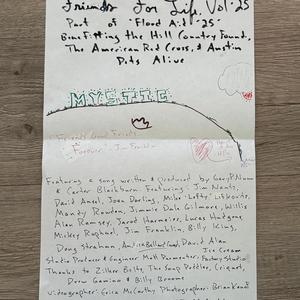 Friends For Life, Vol. 25
Part of "Flood Aid '25"
Benefitting the Hill Country Found.,
The American Red Cross, & Austin
Pets Alive
MYSTIC
Forever" Jim Franklin
Featuring a song written & produced by Gary P. Nunn
& Carter Blackburn. Featuring: Jim Nantz,
David Ansel, Joan Darling, Mike "Lefty" Lefkowits,
Mandy Rowden, Jimmie Dale Gilmore, Willis
Alan Ramsey, Jarod Harmeier, Lucas Hudgens,
Mickey Raphael, Jim Franklin, Billy King,
Doug Strahan, David Alan
Ice Cream
Studio Producer & Engineer Matt Parmenter: Factory Studio
Thanks to Zilker Belts, The Soup Peddler, Criquet,
Drew Gamino & Billy Broome
Videographer: Erica McCarthy Photographer: Brian Kanof